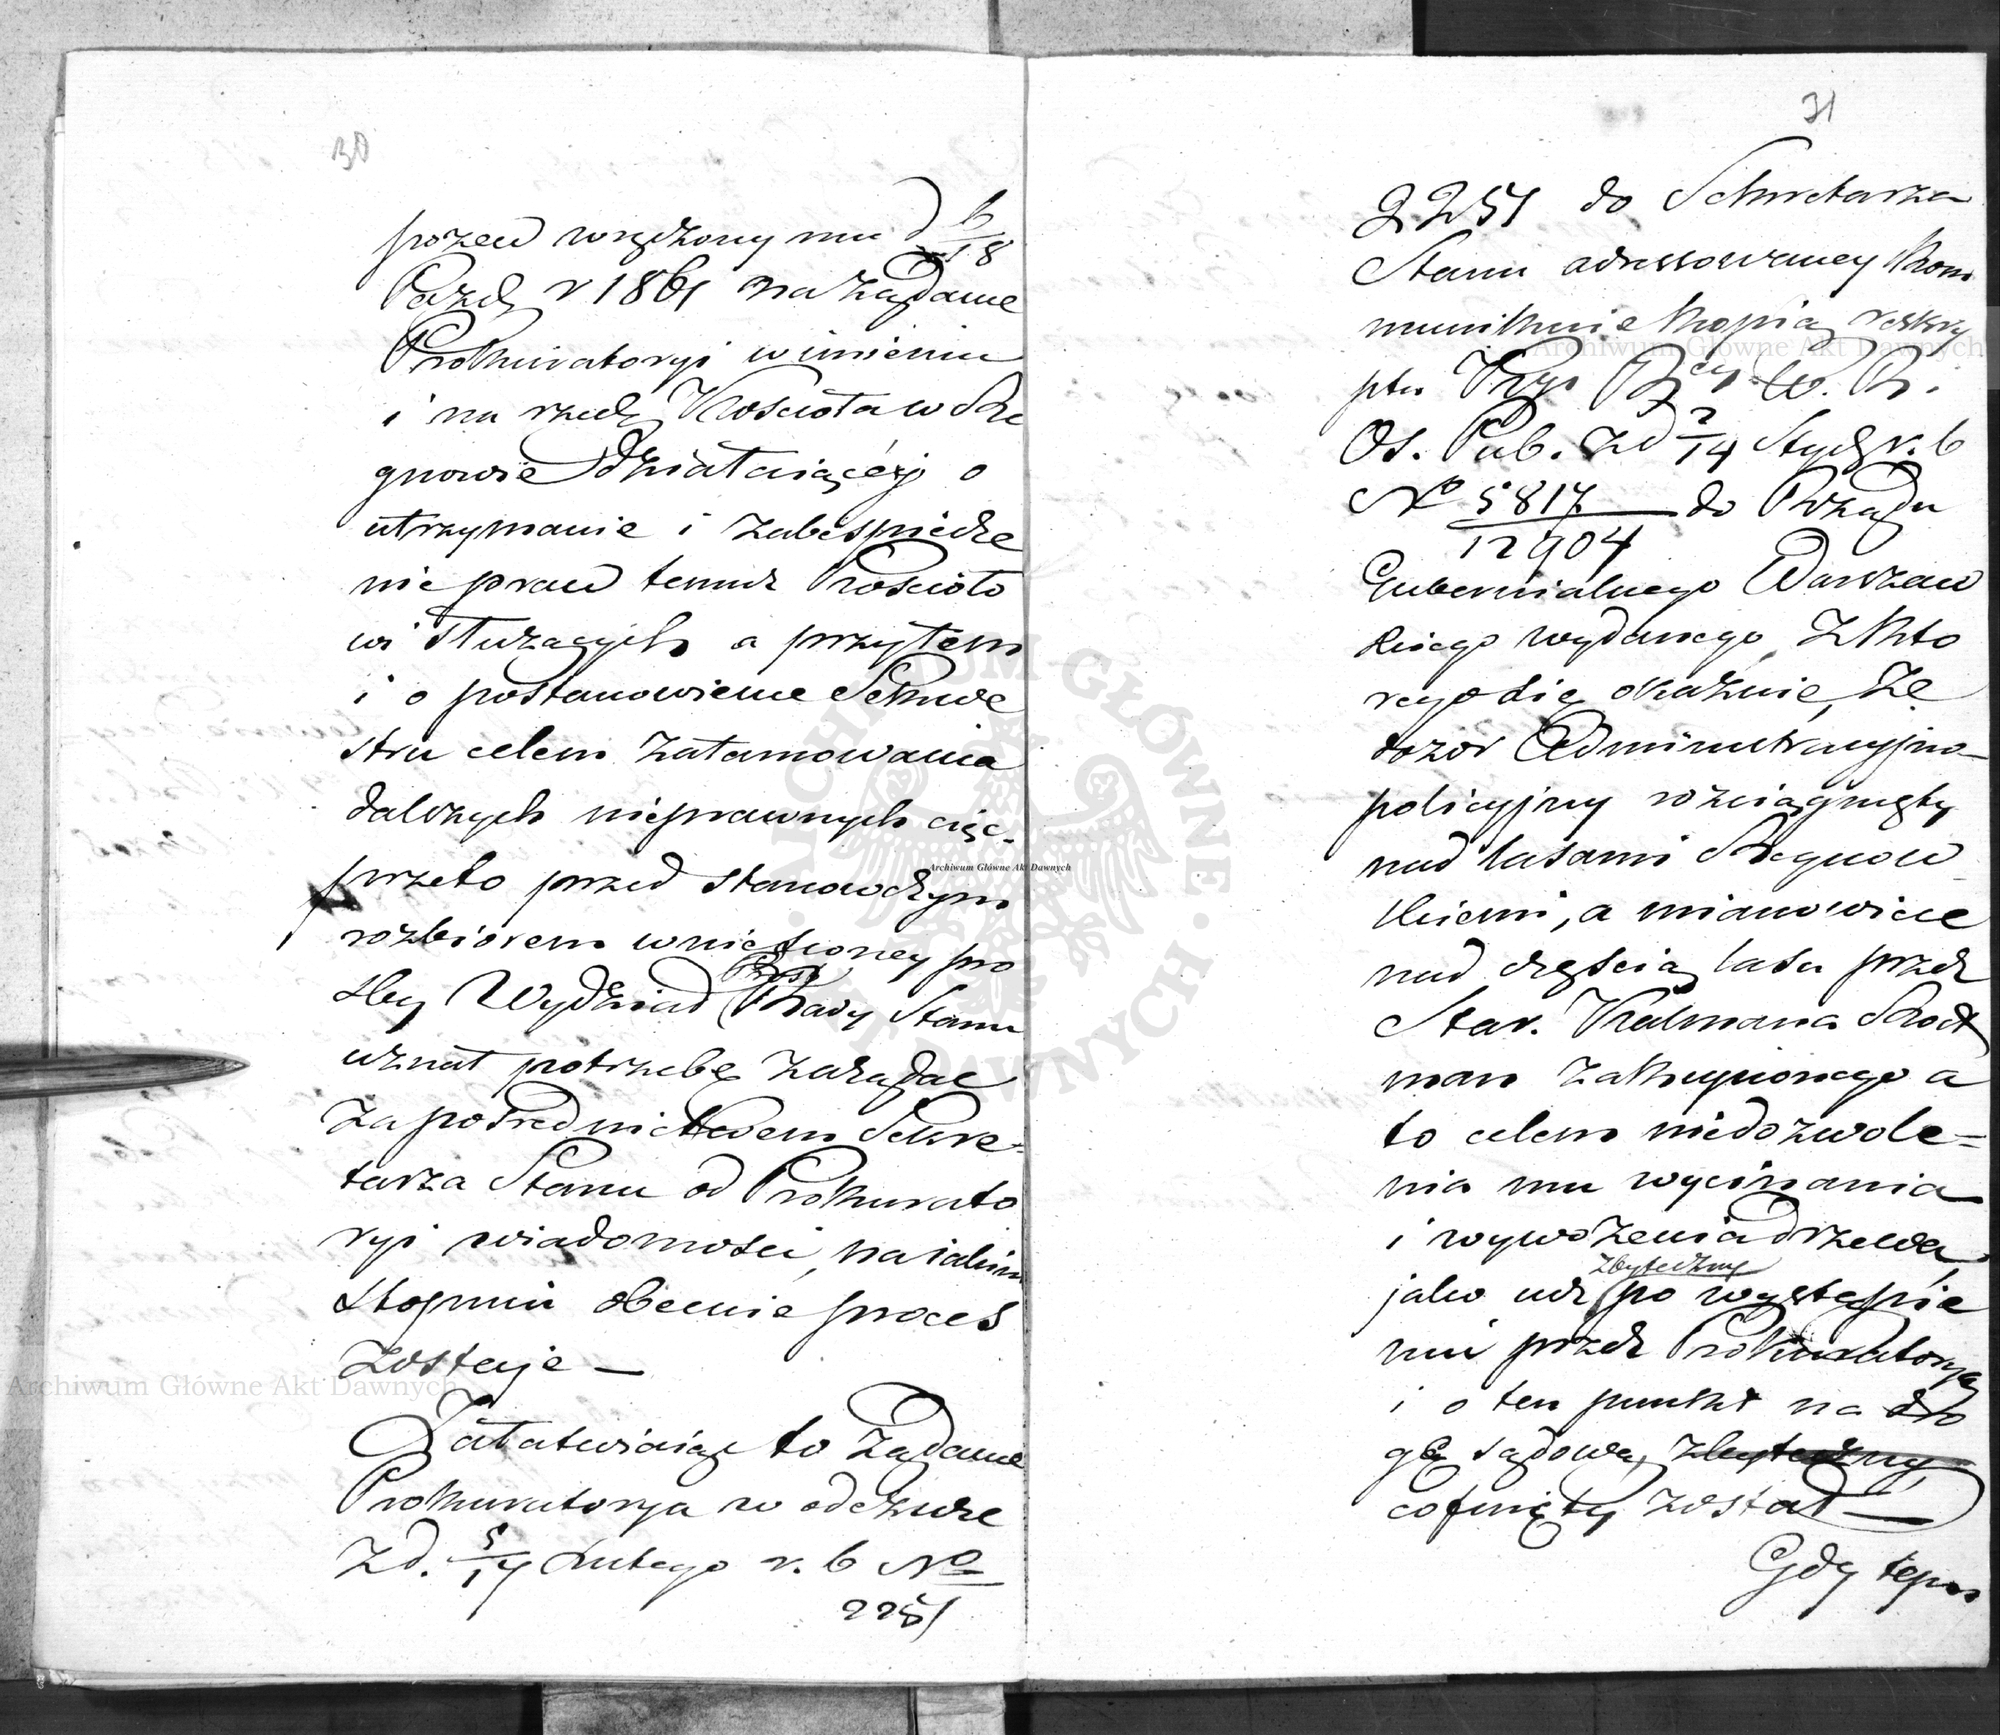 30
pozew wręczony mu d 6/18
Paźdz r 1861 na żądanie
Prokuratoryi w imieniu
i na rzecz Kościoła w Srze
gnowie działaiącéj o
utrzymanie i zabespiecze
nie praw temuż Kościoło
wi służących a przytem
i o postanowienie Sekwe
stru celem zatamowania
dalszych nieprawnych cięć.
przeto przed stanowczym
rozbiorem wniesioney pro
śby Wydział Rady Stanu
uznał potrzebę zażądać
za pośrednictwem Sekre=
tarza Stanu od Prokurato
ryi wiadomości, na iakim
stopniu obecnie proces
zostaje —
Załatwiaiąc to żądanie
Prokuratorya w odezwie
z d. 5/17 Lutego r. b No
2251
31
2251 do Sekretarza
Stanu adressowaney kom
munikuie kopią reskry
ptu Kryi Rz W. R. i
Os. Pub. z d 2/14 Stycz r. b
No 5817/12904 do Rządu
Gubernialnego Warszaw
skiego wydanego, z któ
rego się okazuie, że
dozór Administracyjno-
policyjny rozciągnięty
nad lasami Srzegnow
skiemi, a mianowicie
nad częścią lasu przez
Star. Kalmana
man zakupionego a
to celem niedozwole=
nia mu wycinania
i wywożenia drzewa,
zbyteczny
jako już po wystąpie
niu przez Prokuratoryą
i o ten punkt na dro
gę sądową, zbyteczny
cofnięty został —
Gdy tym
Archiwum Główne Akt Dawnych
Archiwum Główne Akt Dawnych
Archiwum Główne Akt Dawnych
ARCHIWUM GŁÓWNE AKT DAWNYCH